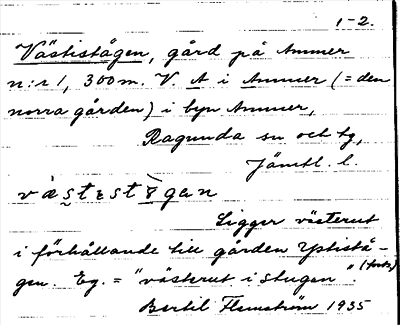 1-2.
Västistågen, gård på Ammer
n:r 1, 300 m. V. A i Ammer (= den
norra gården) i byn Ammer,
Ragunda sn och tg,
Jämtl. l.
Ligger västerut
i förhållande till gården Ystistå-
gen. Eg. = "västerut i stugan". (forts)
Bertil Flemström 1935